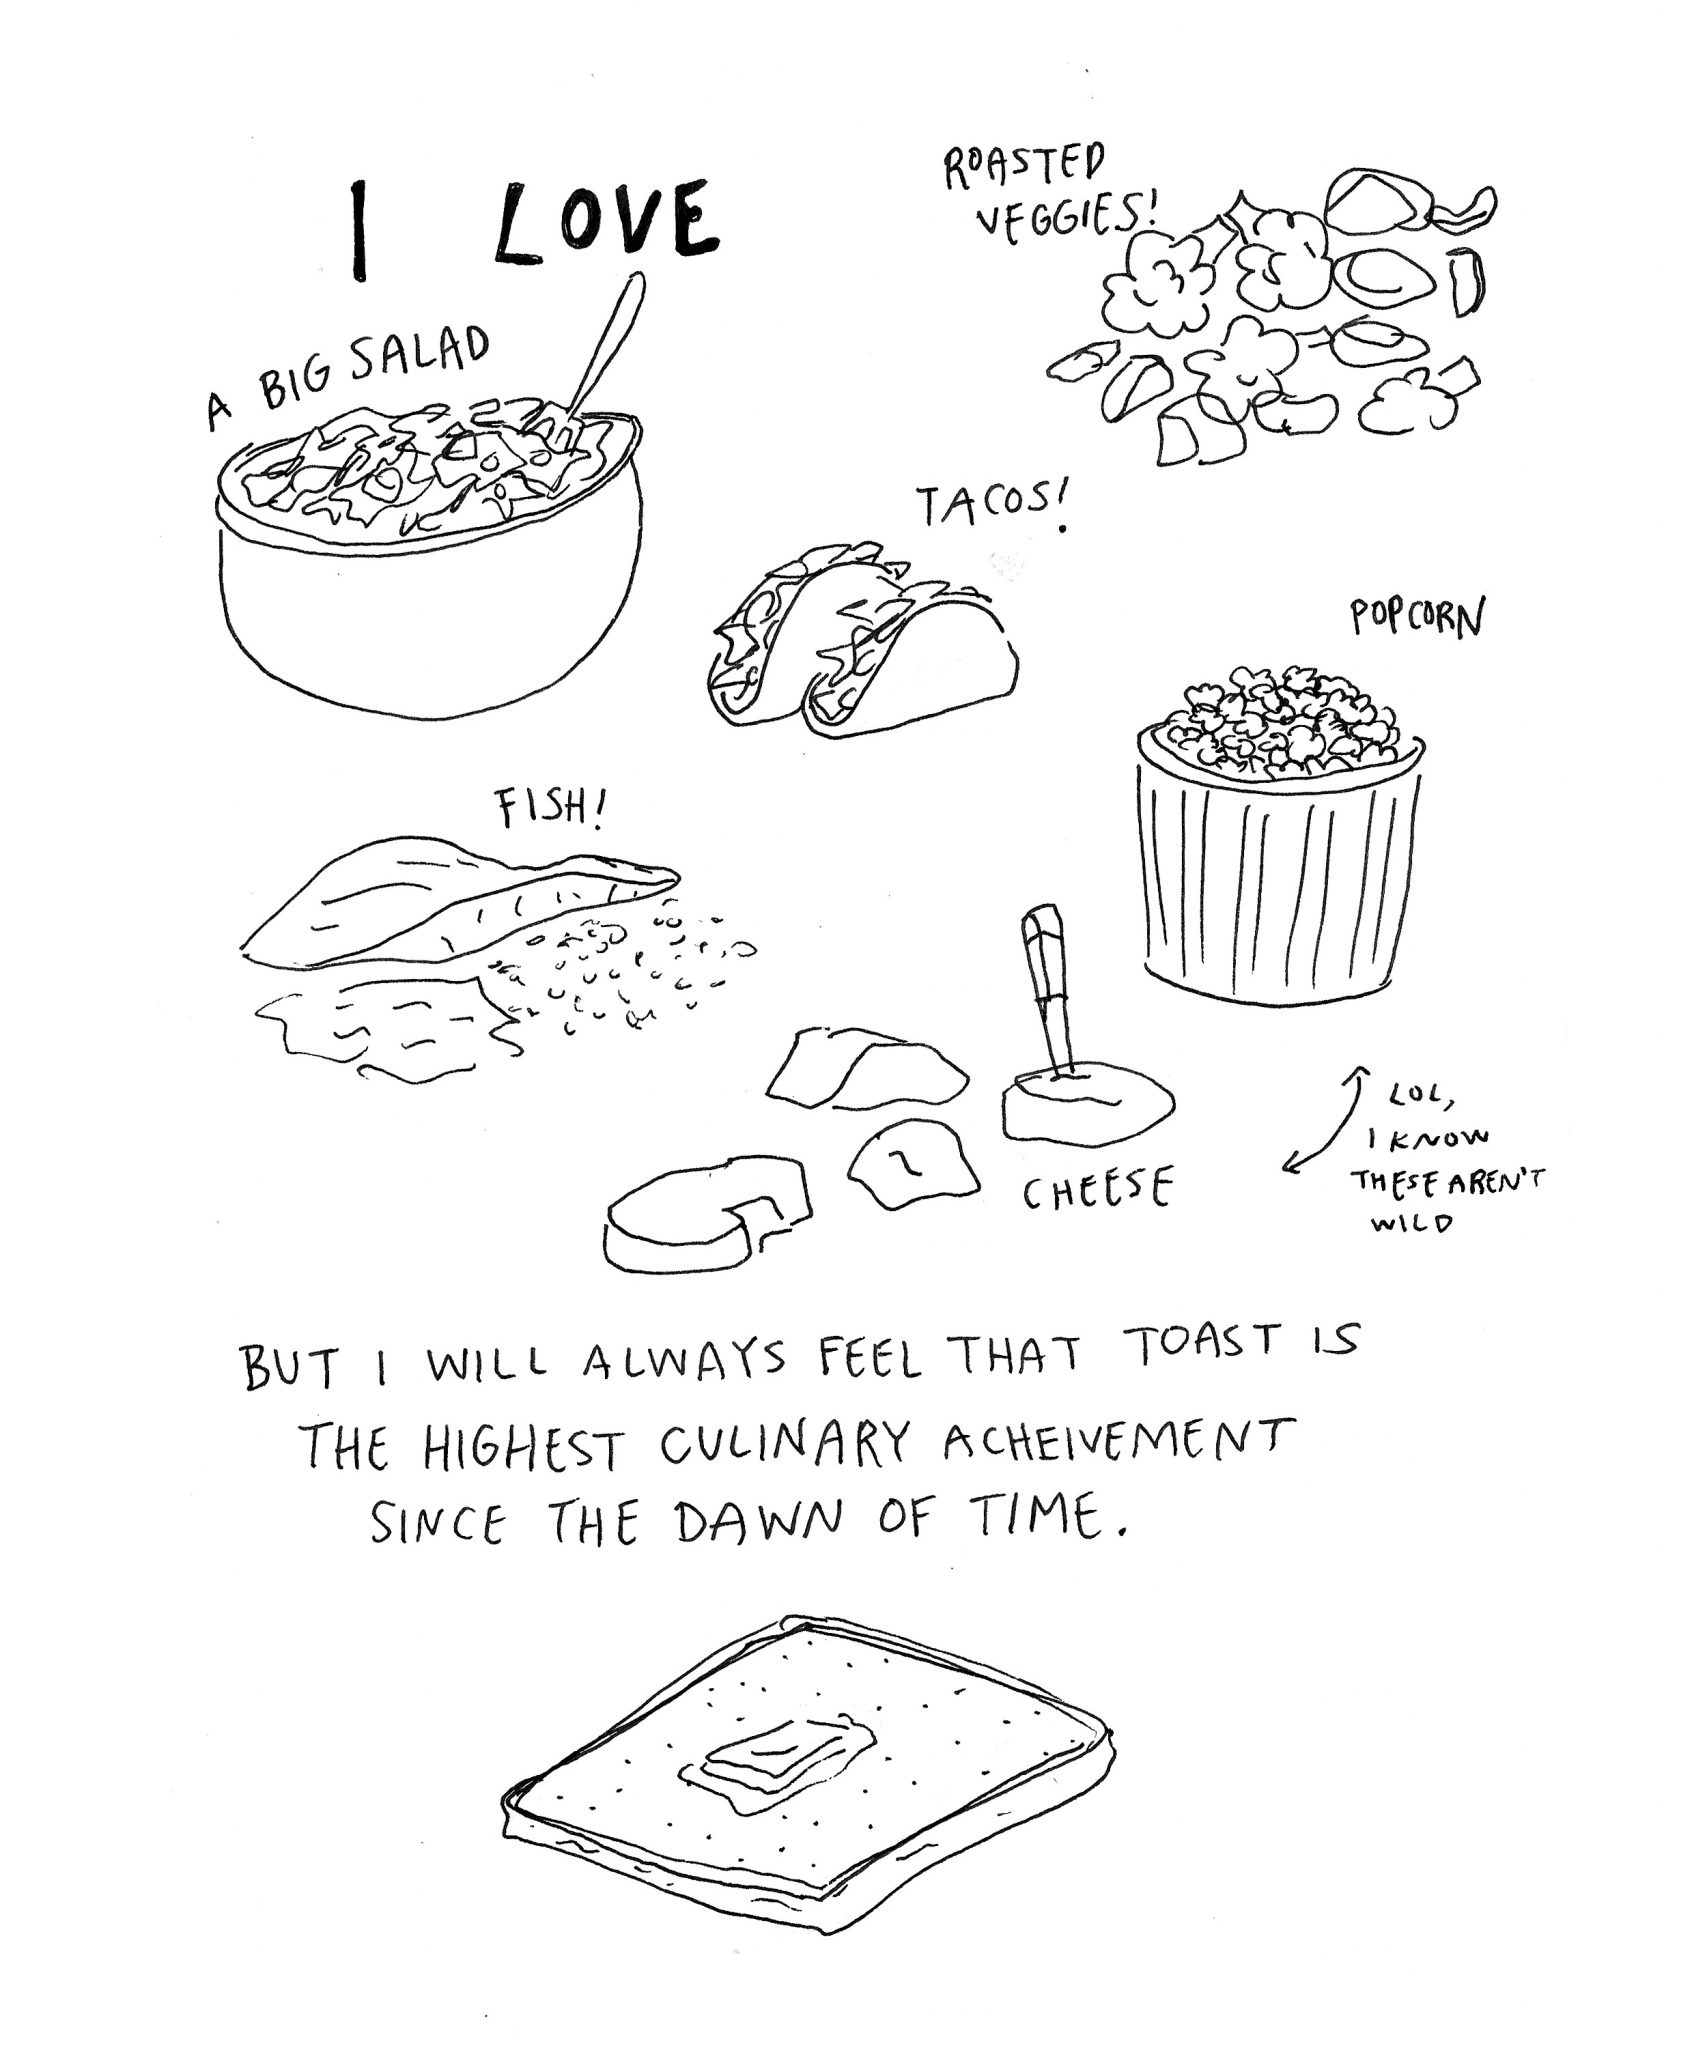 I LOVE
A BIG SALAD
ROASTED
VEGGIES!
TACOS!
POPCORN
FISH!
CHEESE
LOL,
I KNOW
THESE AREN'T
WILD
BUT I WILL ALWAYS FEEL THAT TOAST IS
THE HIGHEST CULINARY ACHEIVEMENT
SINCE THE DAWN OF TIME.